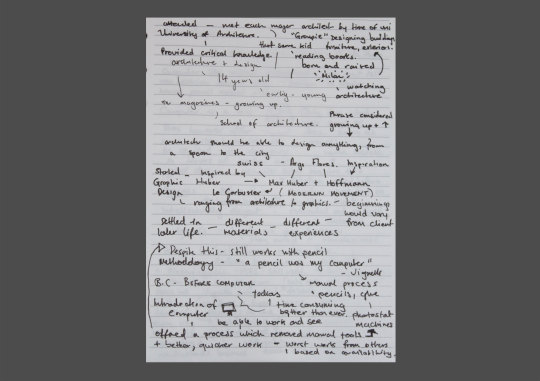 attended - met each major architect by time of uni
University of Architecture. "Groupie" Designing buildings
that same kid furniture, exteriors.
Provided critical knowledge. reading books.
architecture + design born and raised
Milan
14 years old watching
early - young architecture
in magazines - growing up.
Phrase considered
school of architecture. growing up +
architects should be able to design anything, from
a spoon to the city
swiss - Args Flores. Inspiration
Started - inspired by
Graphic Huber → Max Huber + Hoffmann
Design Le Corbusier (MODERN MOVEMENT)
ranging from architecture to graphics. - beginnings
would vary
Settled in - different - different - from client
later life. materials experiences
Despite this - still works with pencil
Methodology - "a pencil was my computer"
- Vignelli
B.C - BEFORE COMPUTER → manual process
todays pencils, glue
Introduction of time consuming
Computer better than ever. photostat
be able to work and see machines
offered a process which removed manual tools
+ better, quicker work - worst works from others
based on availability.